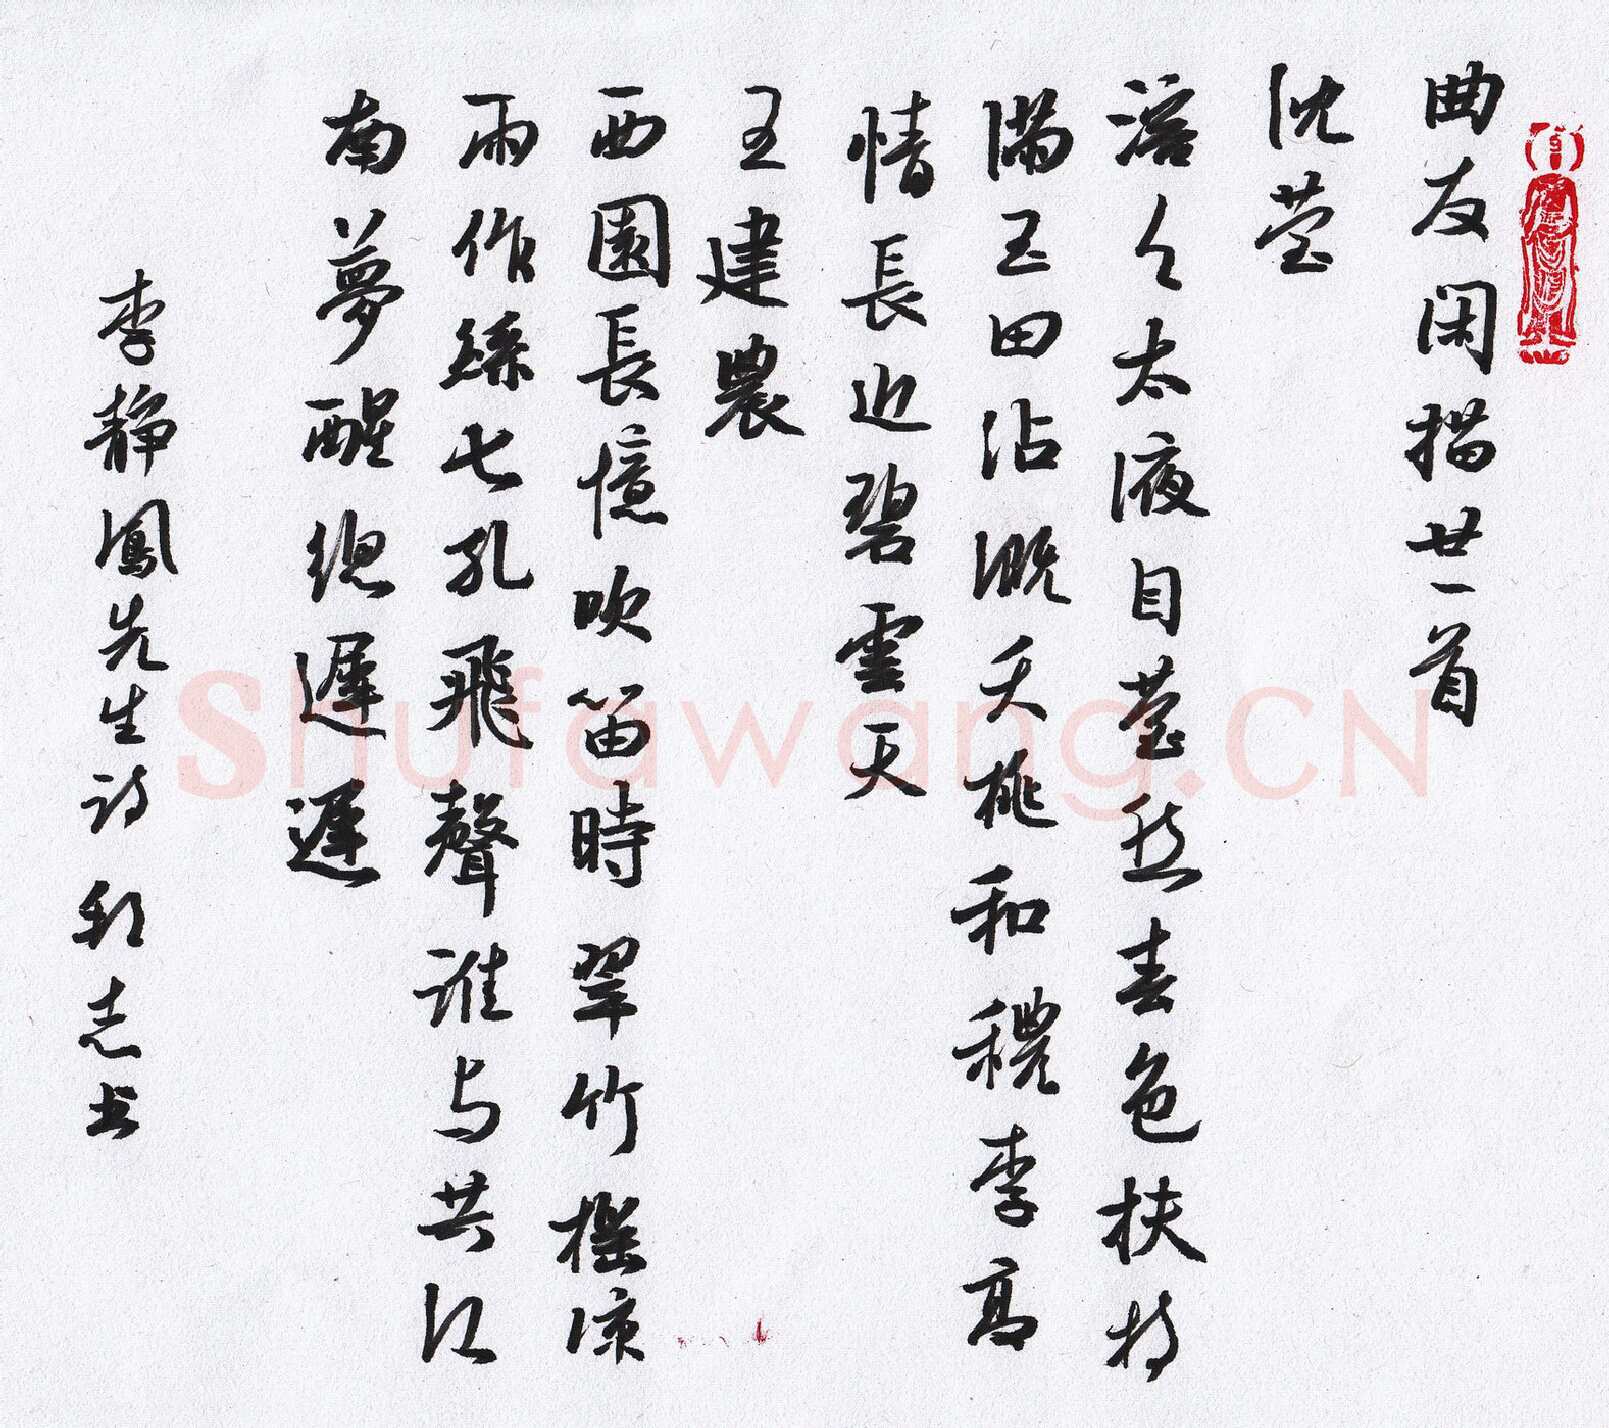 曲友闲描廿一首
沈莹
溶々太液目莹然春色扶持
满玉田沾溉夭桃和穠李高
情長近碧雲天
王建農
西園長憶吹笛時翠竹摇凉
雨作絲七孔飛聲誰与共江
南夢醒總遲遲
李静鳳先生诗 郅志书
Shufawang.CN